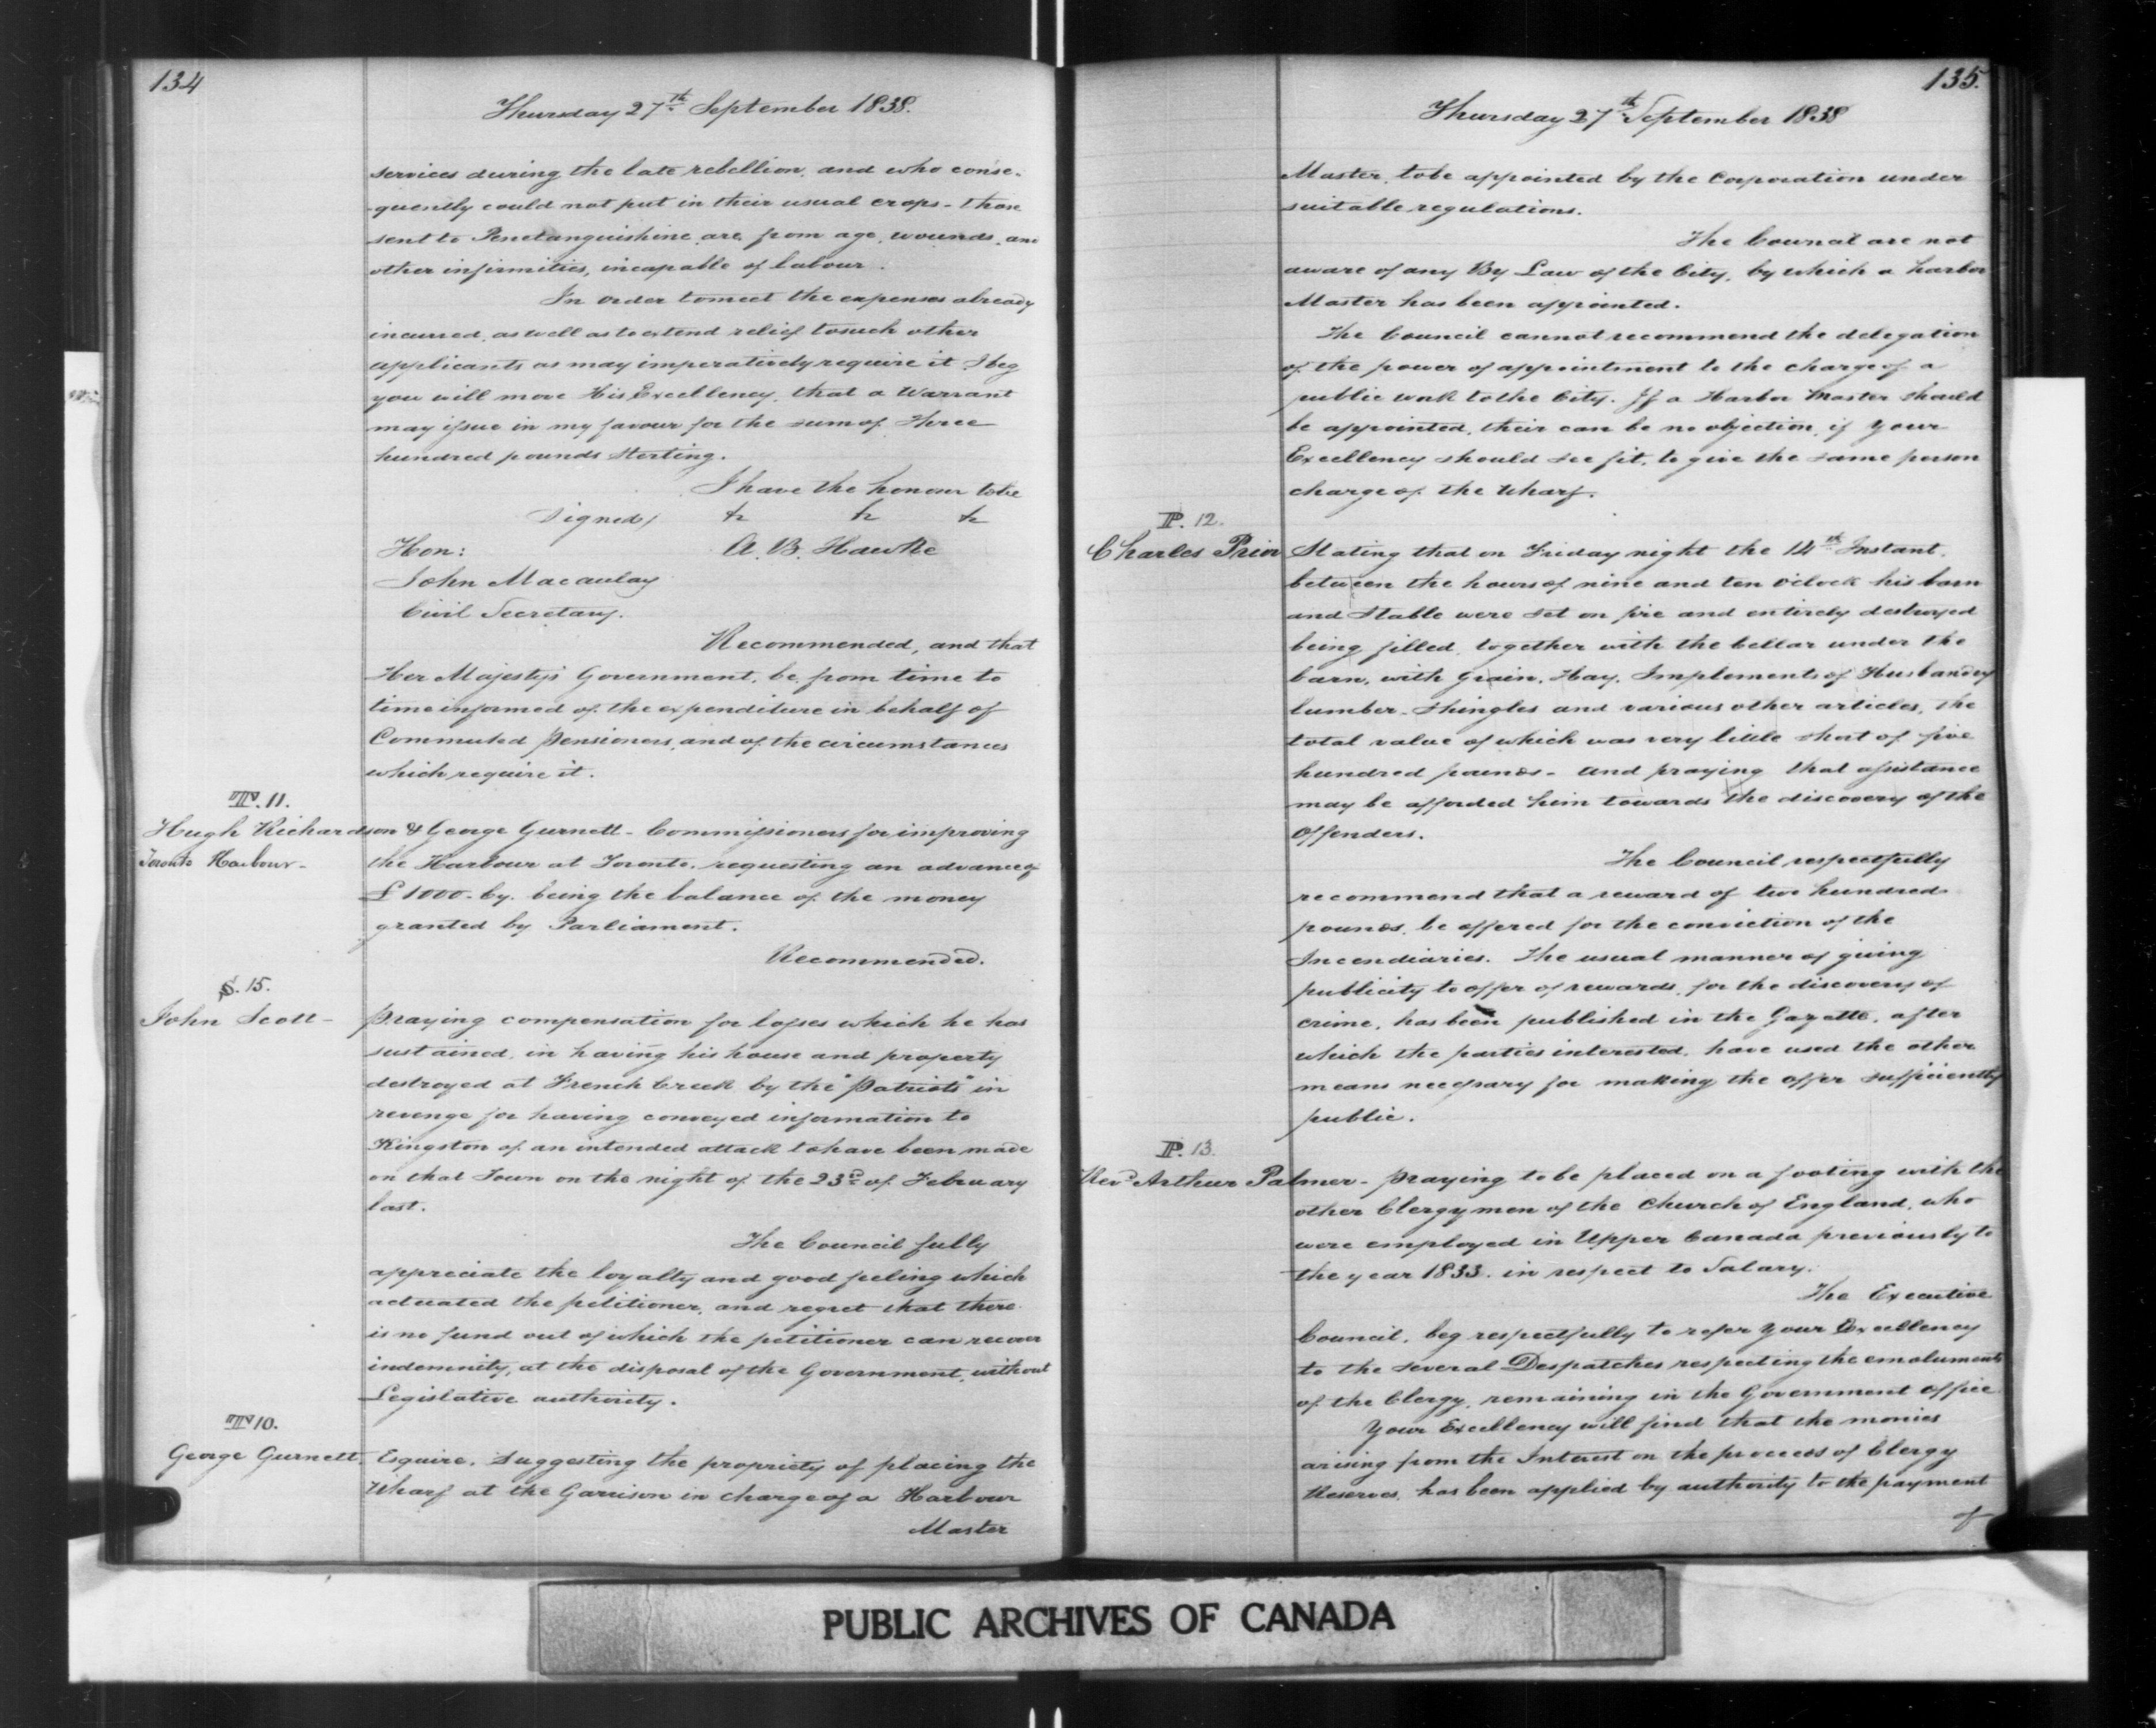 134
Thursday 27th September 1838.
services during the late rebellion, and who conse-
quently could not put in their usual crops - those
sent to Penetanguishine, are, from age, wounds, and
other infirmities, incapable of labour.
In order to meet the expenses already
incurred, as well as to extend relief to such other
applicants as may imperatively require it, I beg
you will move His Excellency, that a Warrant
may issue in my favour for the sum of Three
hundred pounds Sterling.
I have the honour to be
Signed/ &c &c &c
Hon: A. B. Hawke
John Macaulay
Civil Secretary.
Recommended, and that
Her Majesty's Government, be, from time to
time informed of the expenditure in behalf of
Commuted Pensioners, and of the circumstances
which require it.
T. 11.
Hugh Richardson & George Gurnett - Commissioners for improving
Toronto Harbour - the Harbour at Toronto, requesting an advance of
£1000. Cy. being the balance of the money
granted by Parliament.
Recommended.
S. 15.
John Scott - Praying compensation for losses which he has
sustained, in having his house and property
destroyed at French Creek by the "Patriots" in
revenge for having conveyed information to
Kingston of an intended attack to have been made
on that Town on the night of the 23d of February
last.
The Council fully
appreciate the loyalty and good feeling which
actuated the petitioner, and regret that there
is no fund out of which the petitioner can recover
indemnity, at the disposal of the Government, without
Legislative authority.
T 10.
George Gurnett, Esquire, Suggesting the propriety of placing the
Wharf at the Garrison in charge of a Harbour
Master
135.
Thursday 27th September 1838
Master, to be appointed by the Corporation under
suitable regulations.
The Council are not
aware of any By Law of the City, by which a harbor
Master has been appointed.
The Council cannot recommend the delegation
of the power of appointment to the charge of a
public work to the City. If a Harbor Master should
be appointed, their can be no objection, if Your
Excellency should see fit, to give the same person
charge of the Wharf.
P. 12.
Charles Prior Stating that on Friday night the 14th Instant,
between the hours of nine and ten o'clock his barn
and Stable were set on fire and entirely destroyed
being filled, together with the Cellar under the
barn, with Grain, Hay, Implements of Husbandry
lumber - Shingles and various other articles, the
total value of which was very little short of five
hundred pounds - and praying that assistance
may be afforded him towards the discovery of the
Offenders.
The Council respectfully
recommend that a reward of two hundred
pounds, be offered for the conviction of the
Incendiaries. The usual manner of giving
publicity to offer of rewards, for the discovery of
crime, has been published in the Gazette, after
which the parties interested, have used the other
means necessary for making the offer sufficiently
public.
P. 13.
Revd Arthur Palmer - Praying to be placed on a footing with the
other Clergymen of the Church of England, who
were employed in Upper Canada previously to
the year 1833. in respect to Salary.
The Executive
Council, beg respectfully to refer Your Excellency
to the several Despatches respecting the emoluments
of the Clergy, remaining in the Government Office
Your Excellency will find that the monies
arising from the Interest on the proceeds of Clergy
Reserves, has been applied by authority to the payment
of
PUBLIC ARCHIVES OF CANADA